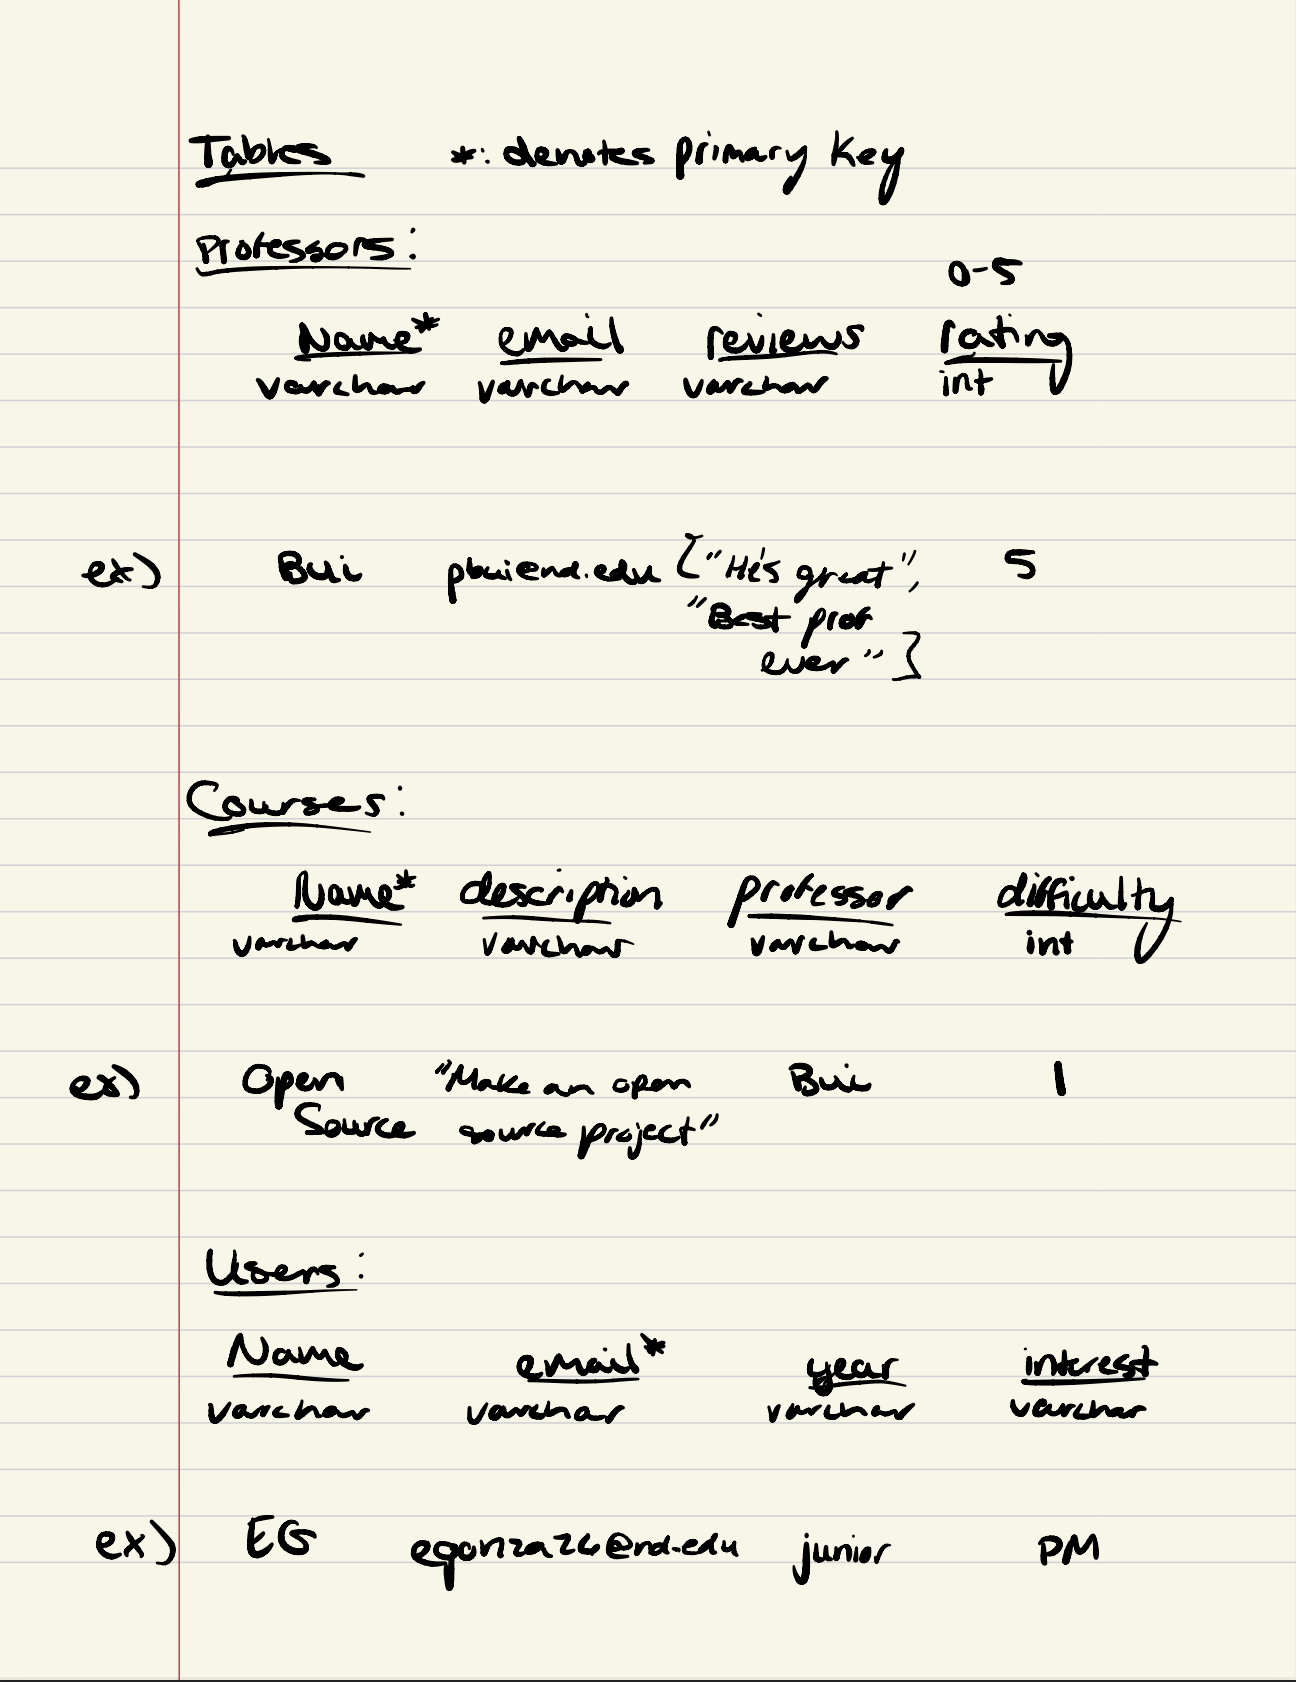 Tables *: denotes primary key
Professors:
0-5
Name* email reviews rating
varchar varchar varchar int
ex) Bui pbui@nd.edu ["He's great", 5
"Best prof
ever"]
Courses:
Name* description professor difficulty
varchar varchar varchar int
ex) Open "Make an open Bui 1
Source source project"
Users:
Name email* year interest
varchar varchar varchar varchar
ex) EG egonza26@nd.edu junior PM